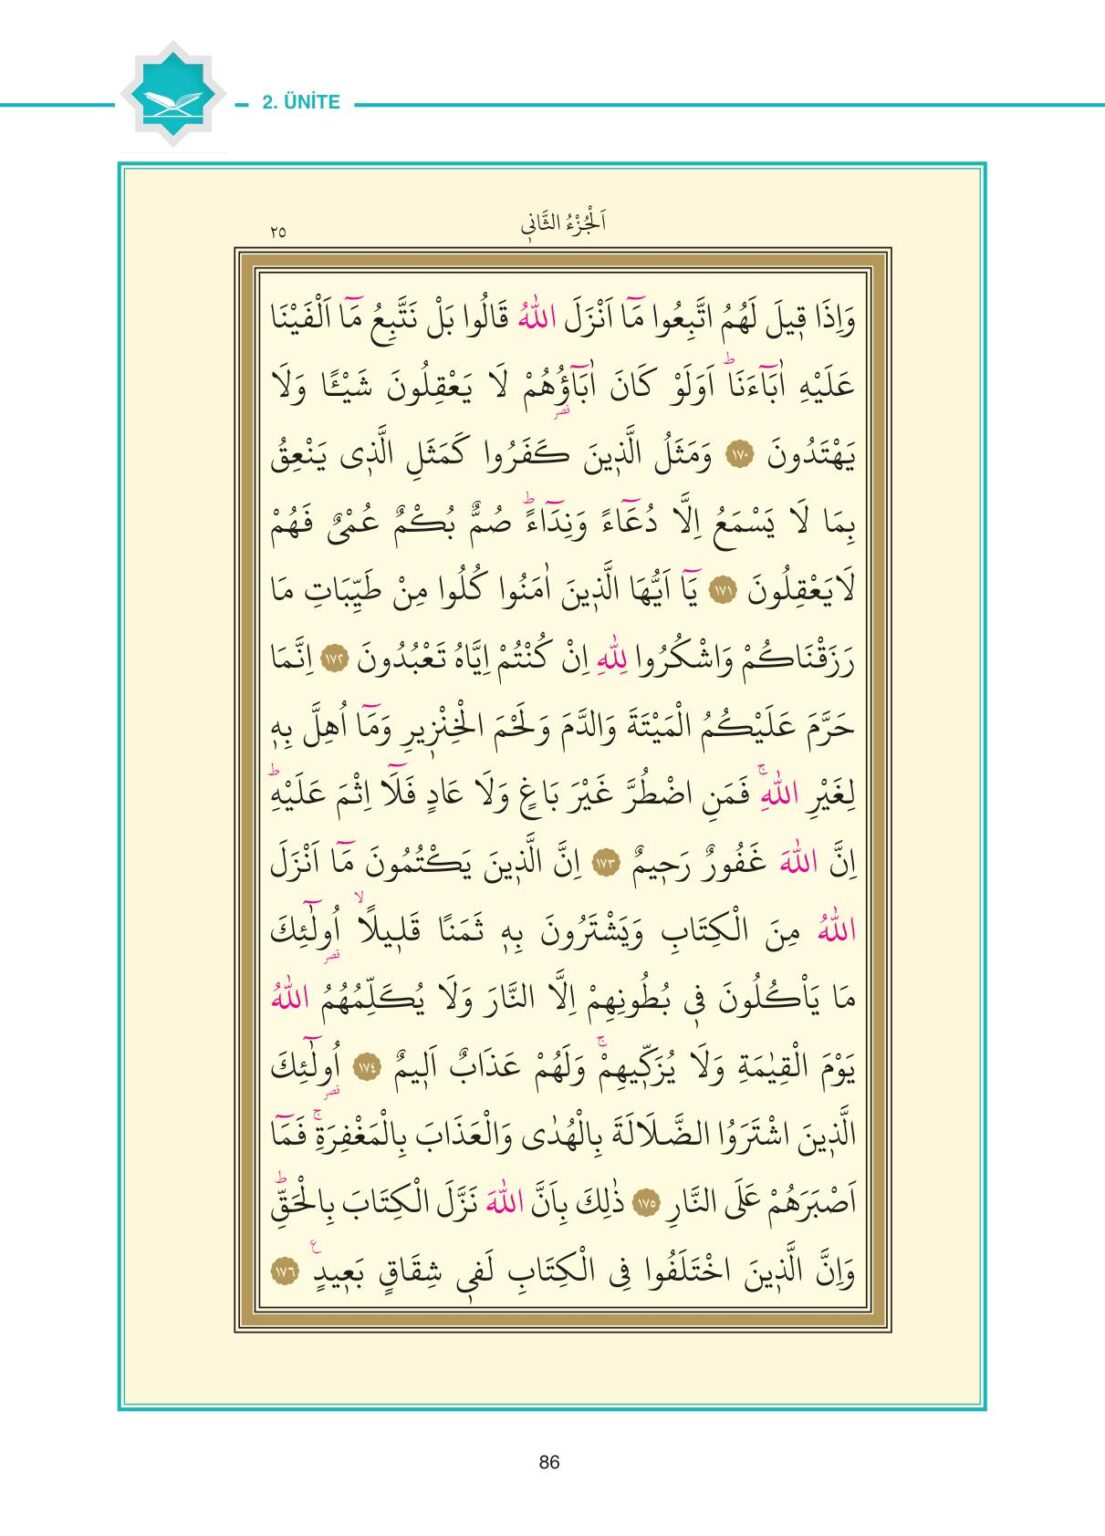 2. ÜNİTE
اَلْجُزْءُ الثَّانٖي
٢٥
وَاِذَا قٖيلَ لَهُمُ اتَّبِعُوا مَٓا اَنْزَلَ اللّٰهُ قَالُوا بَلْ نَتَّبِعُ مَٓا اَلْفَيْنَا
عَلَيْهِ اٰبَٓاءَنَاؕ اَوَلَوْ كَانَ اٰبَٓاؤُ۬هُمْ لَا يَعْقِلُونَ شَيْـًٔا وَلَا
يَهْتَدُونَ ﴿١٧٠﴾ وَمَثَلُ الَّذٖينَ كَفَرُوا كَمَثَلِ الَّذٖى يَنْعِقُ
بِمَا لَا يَسْمَعُ اِلَّا دُعَٓاءً وَنِدَٓاءًؕ صُمٌّ بُكْمٌ عُمْىٌ فَهُمْ
لَايَعْقِلُونَ ﴿١٧١﴾ يَٓا اَيُّهَا الَّذٖينَ اٰمَنُوا كُلُوا مِنْ طَيِّبَاتِ مَا
رَزَقْنَاكُمْ وَاشْكُرُوا لِلّٰهِ اِنْ كُنْتُمْ اِيَّاهُ تَعْبُدُونَ ﴿١٧٢﴾ اِنَّمَا
حَرَّمَ عَلَيْكُمُ الْمَيْتَةَ وَالدَّمَ وَلَحْمَ الْخِنْزٖيرِ وَمَٓا اُهِلَّ بِهٖ
لِغَيْرِ اللّٰهِۚ فَمَنِ اضْطُرَّ غَيْرَ بَاغٍ وَلَا عَادٍ فَلَٓا اِثْمَ عَلَيْهِؕ
اِنَّ اللّٰهَ غَفُورٌ رَحٖيمٌ ﴿١٧٣﴾ اِنَّ الَّذٖينَ يَكْتُمُونَ مَٓا اَنْزَلَ
اللّٰهُ مِنَ الْكِتَابِ وَيَشْتَرُونَ بِهٖ ثَمَنًا قَلٖيلًاۙ اُو۬لٰٓئِكَ
مَا يَاْكُلُونَ فٖى بُطُونِهِمْ اِلَّا النَّارَ وَلَا يُكَلِّمُهُمُ اللّٰهُ
يَوْمَ الْقِيٰمَةِ وَلَا يُزَكّٖيهِمْۚ وَلَهُمْ عَذَابٌ اَلٖيمٌ ﴿١٧٤﴾ اُو۬لٰٓئِكَ
الَّذٖينَ اشْتَرَوُا الضَّلَالَةَ بِالْهُدٰى وَالْعَذَابَ بِالْمَغْفِرَةِۚ فَمَٓا
اَصْبَرَهُمْ عَلَى النَّارِ ﴿١٧٥﴾ ذٰلِكَ بِاَنَّ اللّٰهَ نَزَّلَ الْكِتَابَ بِالْحَقِّؕ
وَاِنَّ الَّذٖينَ اخْتَلَفُوا فِى الْكِتَابِ لَفٖى شِقَاقٍ بَعٖيدٍ ع ﴿١٧٦﴾
86